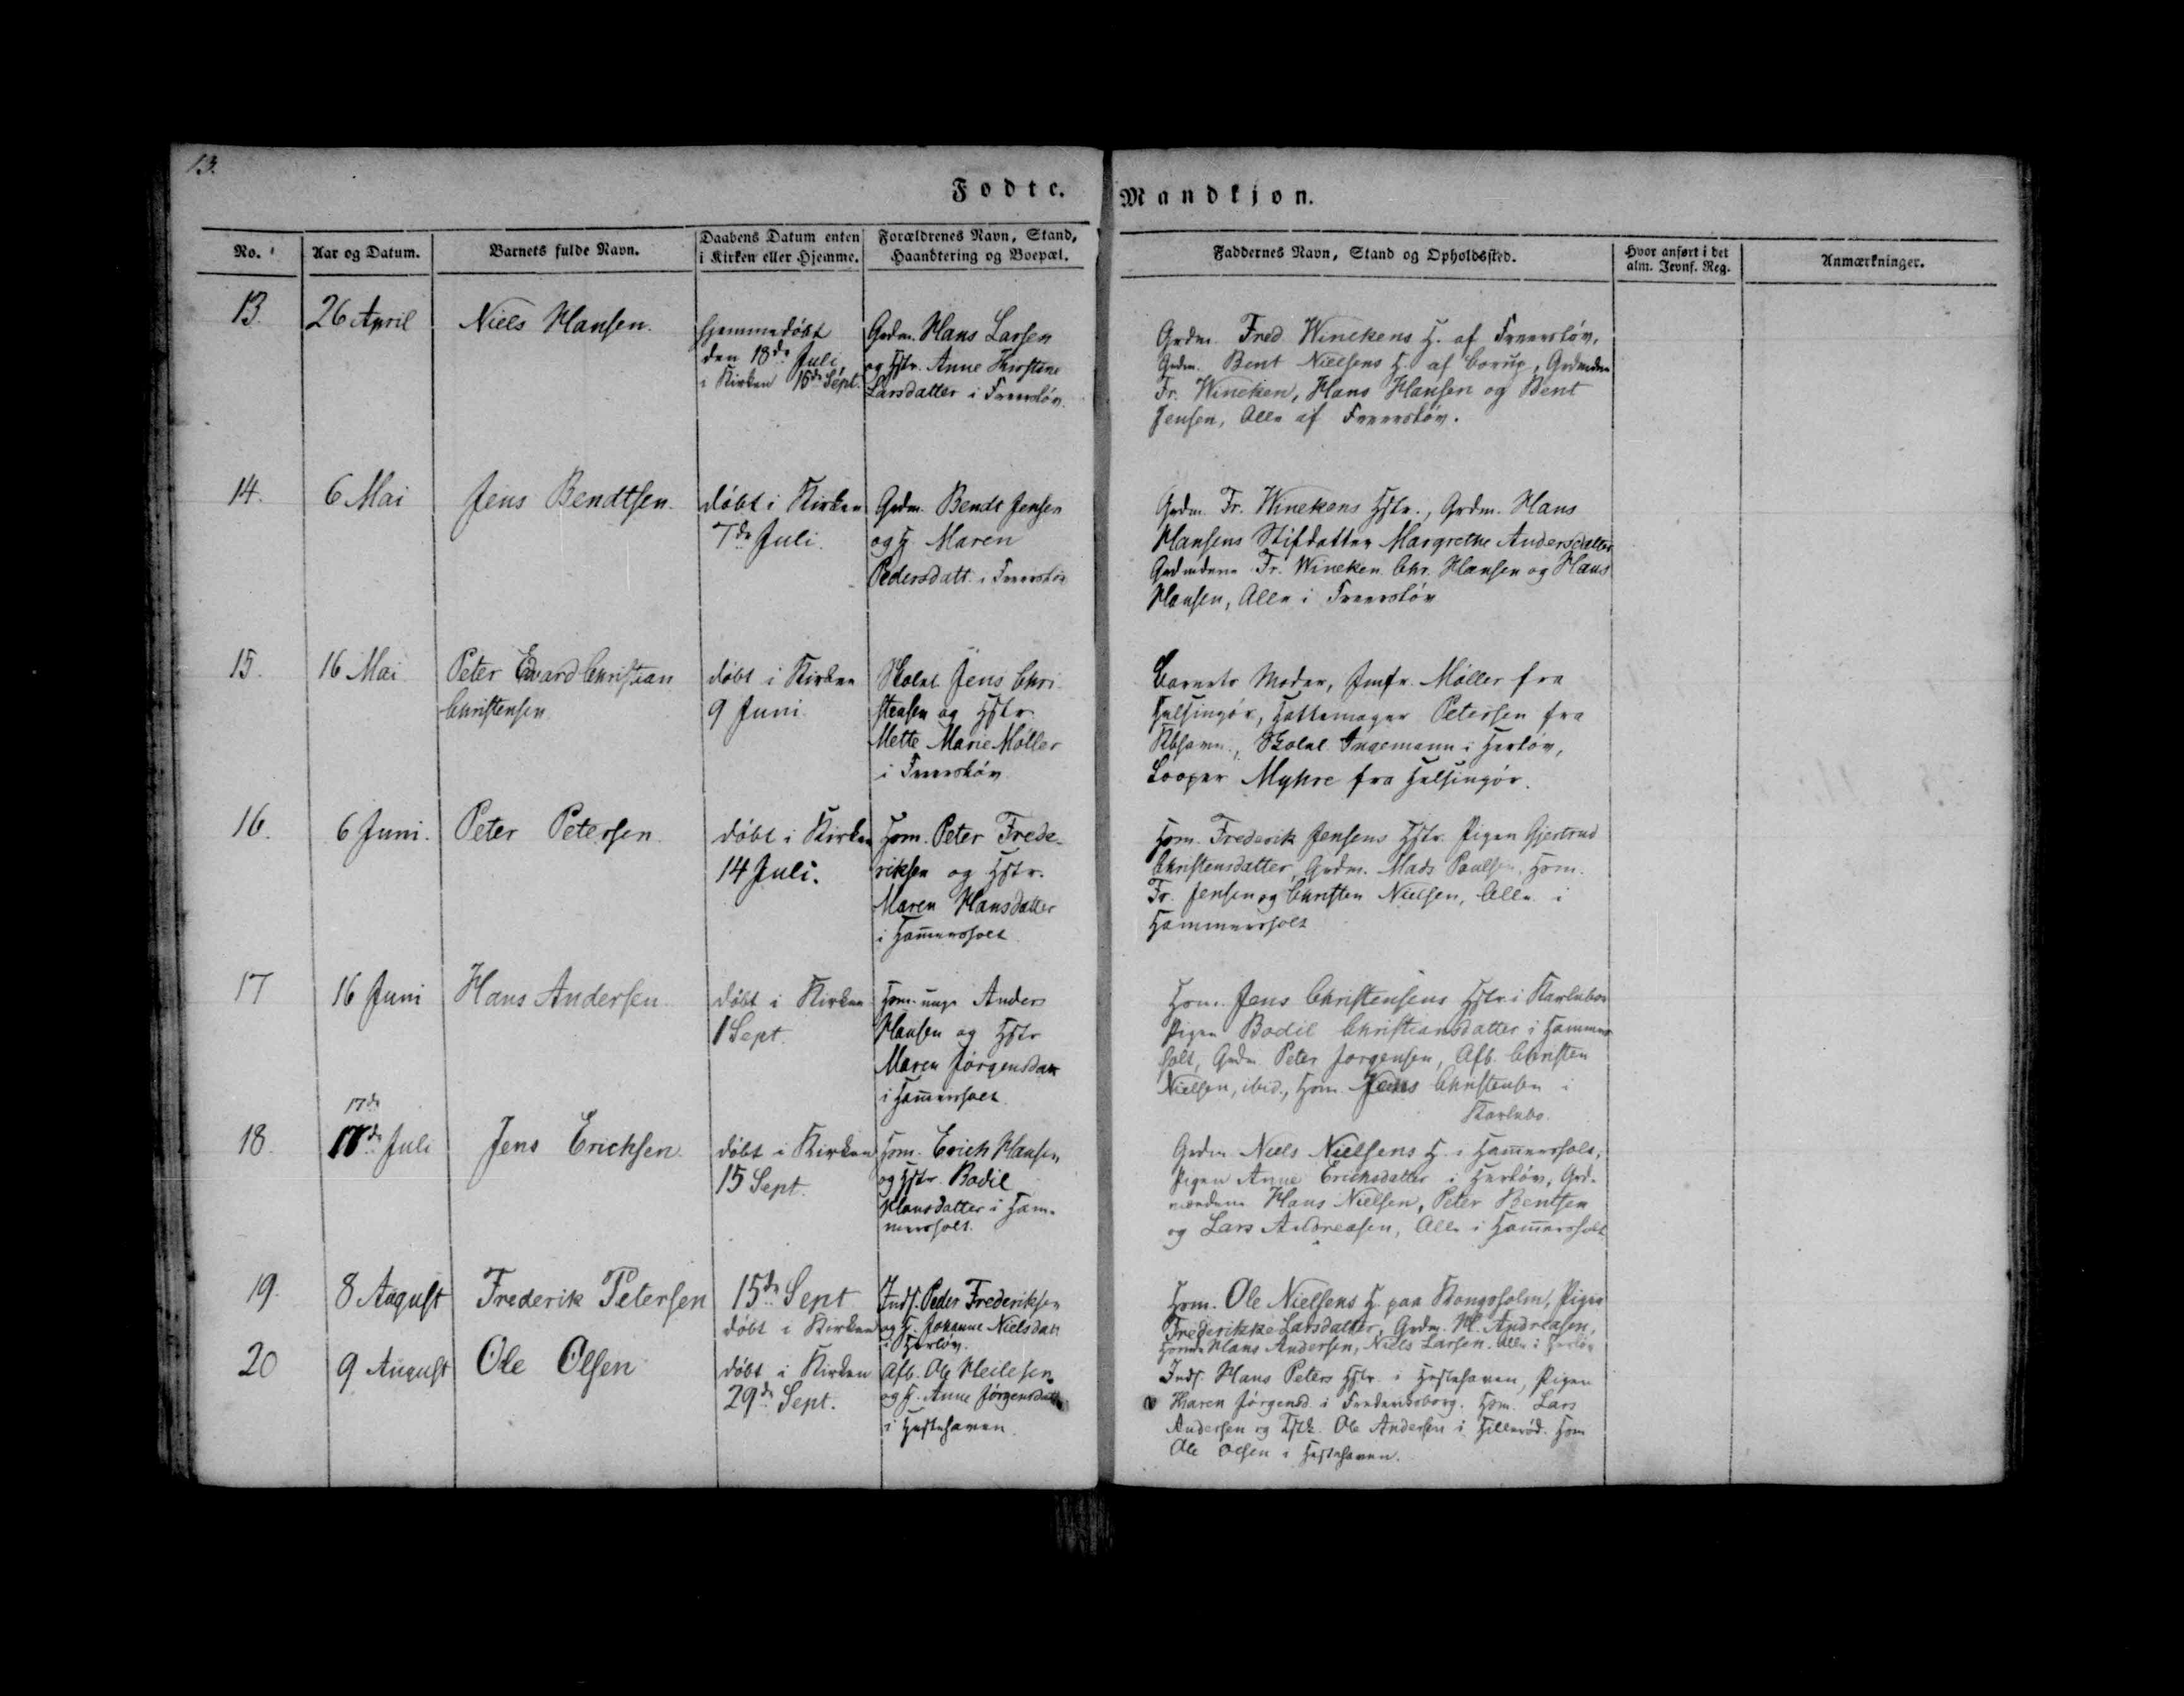 13.
Fødte.
Mandkjøn.
No.
Aar og Datum.
Barnets fulde Navn.
Daabens Datum enten
i Kirken eller Hjemme.
Forældrenes Navn, Stand,
Haandtering og Boepæl.
Faddernes Navn, Stand og Opholdssted.
Hvor anført i det
alm. Jevnf. Reg.
Anmærkninger.
13.
26 April
Niels Hansen.
hjemmedøbt
den 18de Juli
i Kirken 15de Sept.
Grdm. Hans Larsen
og Hstr. Anne Kirstine
Larsdatter i Freerslev.
Grdm. Fred. Winekens H. af Freerslöv,
Grdm. Bent Nielsens H. af Borup, Grdmdne
Fr. Wineken, Hans Hansen og Bent
Jensen, Alle af Freerslöv.
14.
6 Mai
Jens Bendtsen.
döbt i Kirken
7de Juli.
Grdm. Bendt Jensen
og H. Maren
Pedersdatt. i Freerslöv
Grdm. Fr. Winekens Hstr., Grdm. Hans
Hansens Stifdatter Margrethe Andersdatter
Grdmdene Fr. Wineken Chr. Hansen og Hans
Hansen, Alle i Freerslöv
15.
16 Mai
Peter Edvard Christian
Christensen
döbt i Kirken
9 Juni.
Skolel. Jens Chri-
stensen og Hstr.
Mette Marie Møller
i Freerslöv
Barnets Moder, Jmfr. Møller fra
Helsingör, Hattemager Petersen fra
Kbhavn, Skolel. Ingemann i Herlöv,
Myhre fra Helsingör.
16.
6 Juni.
Peter Petersen.
döbt i Kirken
14 Juli.
Hsm. Peter Frede-
riksen og Hstr.
Maren Hansdatter
i Hammersholt
Hsm. Frederik Jensens Hstr. Pigen Gjertrud
Christensdatter, Grdm. Mads Poulsen, Hsm.
Fr. Jensen og Christen Nielsen, Alle i
Hammersholt
17
16 Juni
Hans Andersen
döbt i Kirken
1 Sept.
Hsm. unge Anders
Hansen og Hstr
Maren Jörgensdatt
i Hammersholt.
Hsm. Jens Christensens Hstr. i Karlebo
Pigen Bodil Christiansdatter i Hammers
holt, Grdm Peter Jørgensen, Afb. Christen
Nielsen, ibid., Hsm. Jens Christensen i
Karlebo.
17de
18.
17de Juli
Jens Erichsen.
döbt i Kirken
15 Sept.
Hsm. Erich Hansen
og Hstr. Bodil
Hansdatter i Ham-
mersholt.
Grdm. Niels Nielsens H. i Hammersholt,
Pigen Anne Erichsdatter i Herlöv, Grd-
mændene Hans Nielsen, Peter Bentsen
og Lars Andreasen, Alle i Hammersholt
19.
8 August
Frederik Petersen
15de Sept
döbt i Kirken
Inds. Peder Frederiksen
og H. Johanne Nielsdatt
i Herlöv.
Hsm. Ole Nielsens H. paa Kongsholm, Pigen
Frederikke Larsdatter, Grdm. N. Andreasen,
Hsmdne Hans Andersen, Niels Larsen. Alle i Herlöv
20
9 August
Ole Olsen
döbt i Kirken
29de Sept.
Afb. Ole
og H. Anne Jörgensdatt
i Hestehaven.
Inds. Hans Peters Hstr. i Hestehaven, Pigen
Maren Jörgensd. i Frederiksborg. Hsm. Lars
Andersen og Ole Andersen i Hilleröd. Hsm
Ole Olsen i Hestehaven.